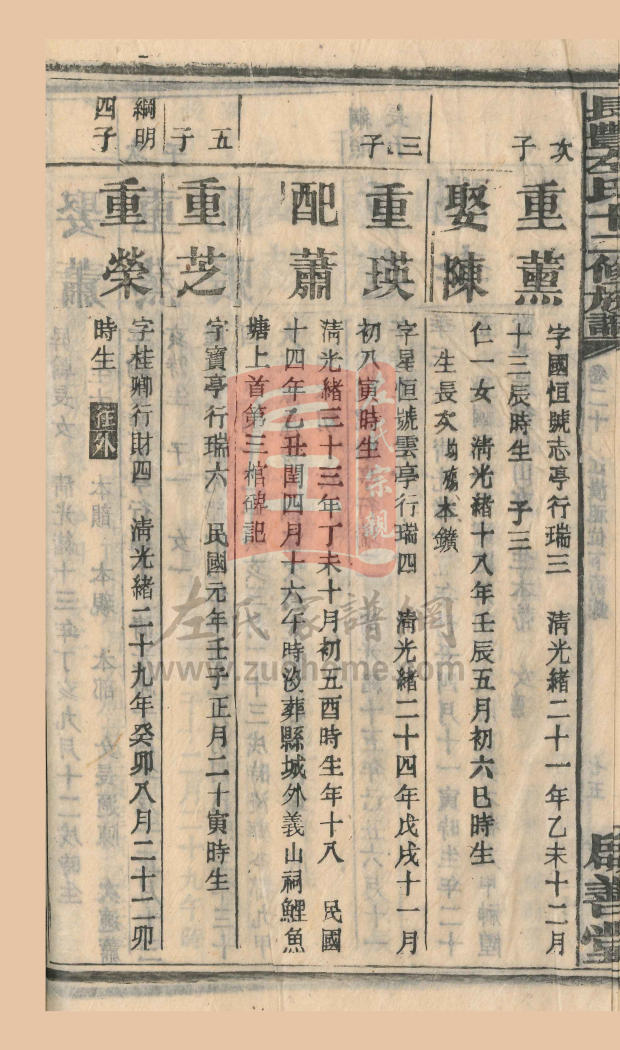 長豐左氏十二修族譜
卷二十
七五
啟善堂
次子
重薰
字國恒號志亭行瑞三 清光緒二十一年乙未十二月
十三辰時生 子三
娶陳
仁一女 清光緒十八年壬辰五月初六巳時生
生長次均殤 本鑛
三子
重瑛
字星恒號雲亭行瑞四 清光緒二十四年戊戌十一月
初八寅時生
配蕭
清光緒三十三年丁未十月初五酉時生年十八 民國
十四年乙丑閏四月十六午時汝葬縣城外義山祠鯉魚
塘上首第三棺碑記
五子
重芝
字寶亭行瑞六 民國元年壬子正月二十寅時生
綱明四子
重榮
字桂卿行財四 清光緒二十九年癸卯八月二十二卯
時生 往外
左氏宗親
左氏家譜網
www.zuohome.com